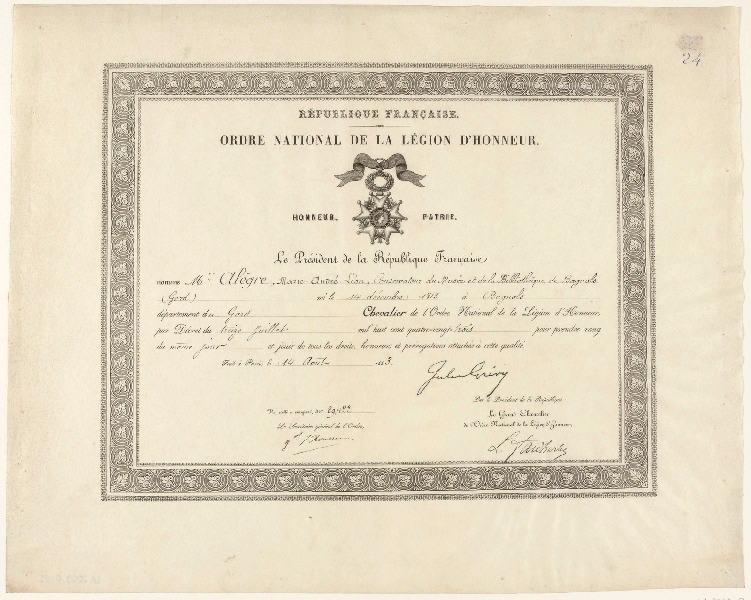 24
RÉPUBLIQUE FRANÇAISE.
ORDRE NATIONAL DE LA LÉGION D'HONNEUR.
HONNEUR. PATRIE.
Le Président de la République Française,
nomme Mr Alègre, Marie André Léon, Conservateur du Musée et de la Bibliothèque de Bagnols
(Gard) né le 14 décembre 1813 à Bagnols
département du Gard Chevalier de l'Ordre National de la Légion d'Honneur,
par Décret du treize Juillet mil huit cent quatre-vingt trois pour prendre rang
du même jour et jouir de tous les droits, honneurs et prérogatives attachés à cette qualité.
Fait à Paris, le 14 Août 3.
Jules Grévy
Par le Président de la République
Vu, scellé et enregistré, No
Le Grand Chancelier
Le Secrétaire général de l'Ordre,
de l'Ordre National de la Légion d'Honneur,
L. Faidherbe